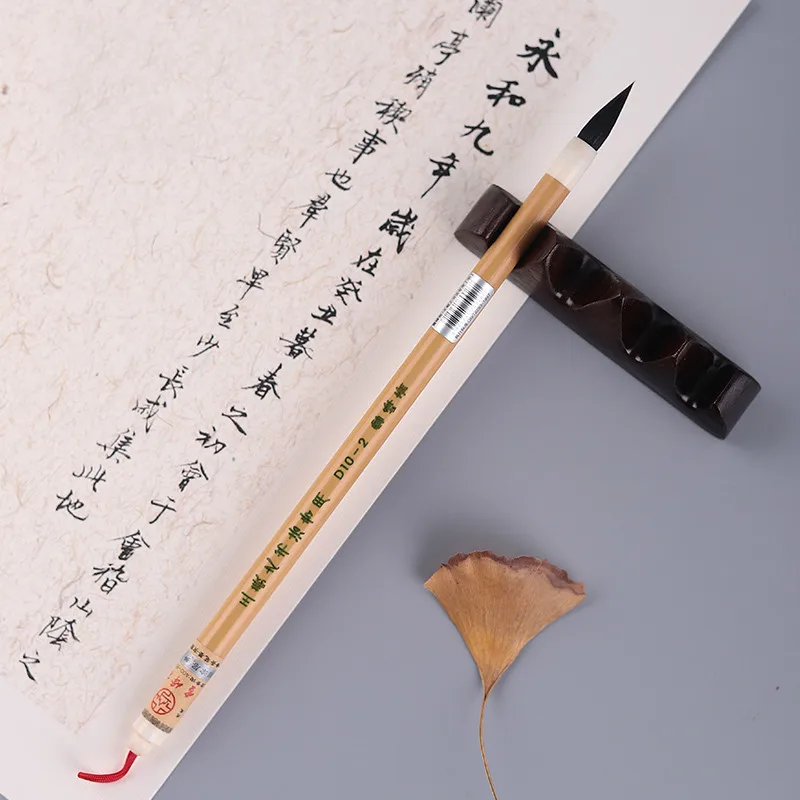 永和九年歲在癸丑暮春之初會于會稽山陰之
蘭亭脩禊事也羣賢畢至少長咸集此地
之书法专用 D10-2